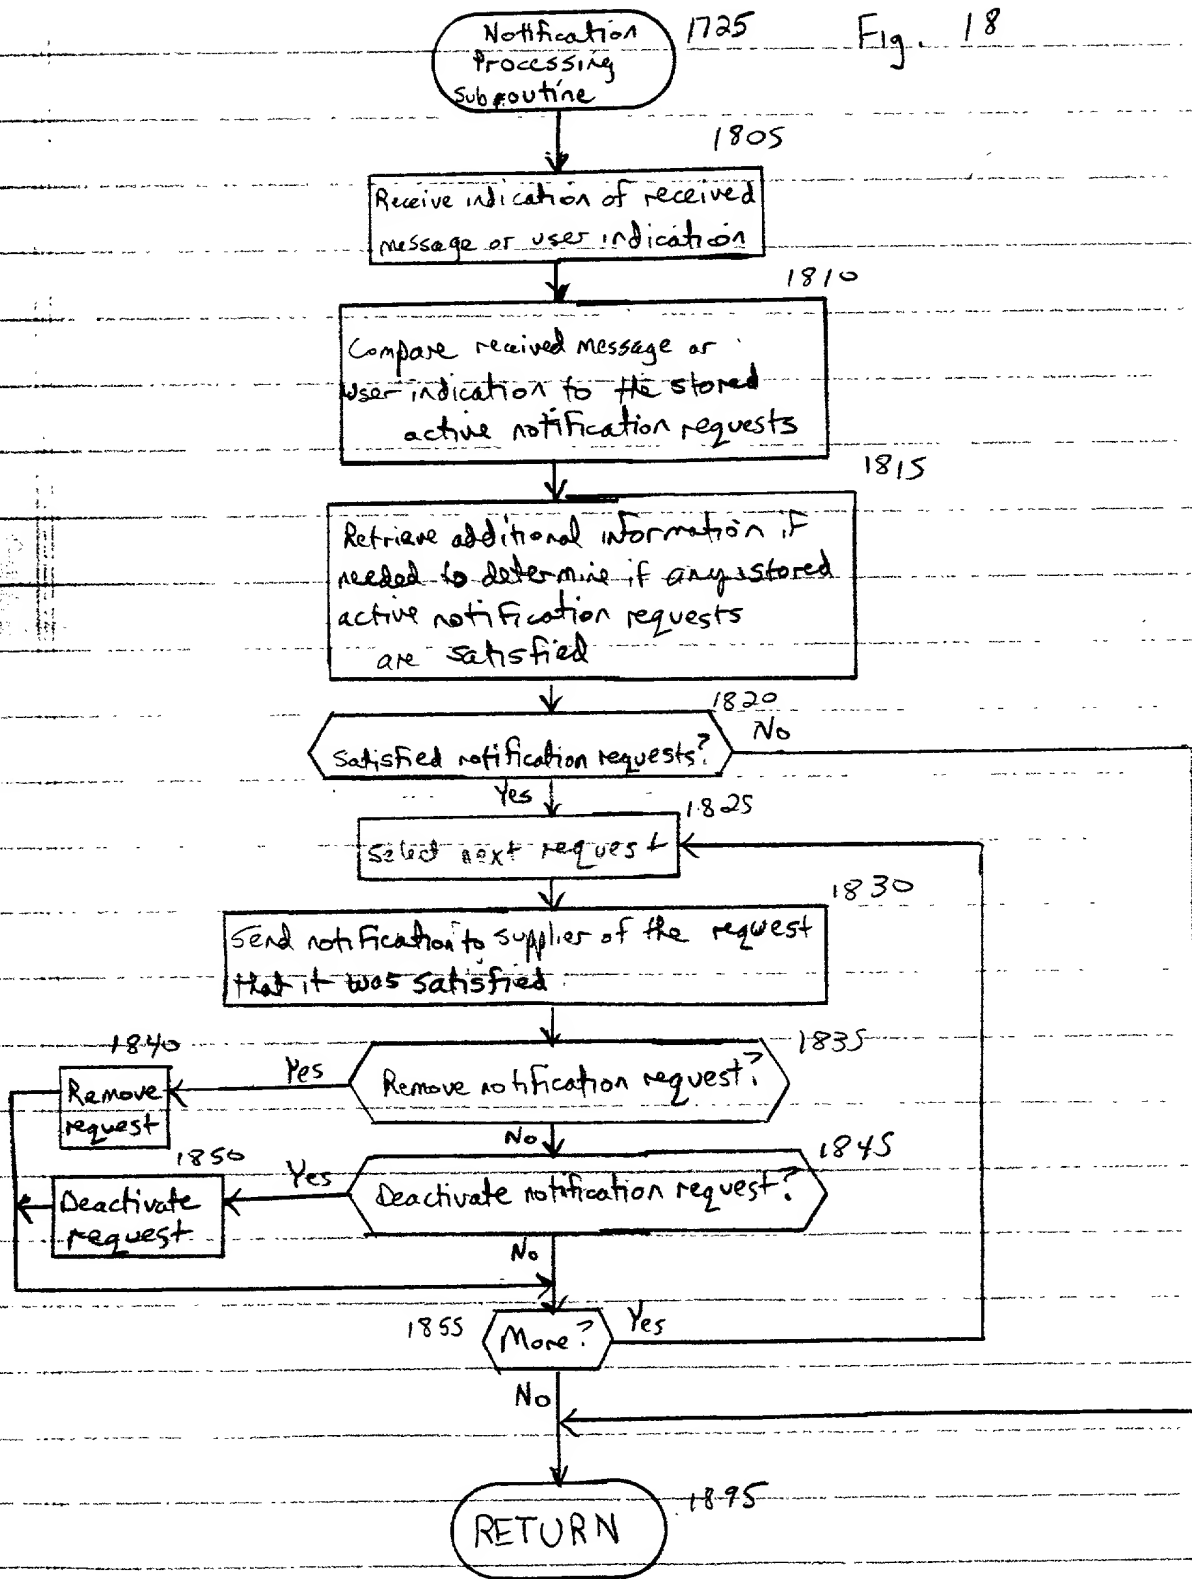 Notification
Processing
Subroutine
1725
Fig. 18
1805
Receive indication of received
message or user indication
1810
Compare received message or
user indication to the stored
active notification requests
1815
Retrieve additional information if
needed to determine if any stored
active notification requests
are satisfied
1820
Satisfied notification requests?
No
Yes
1825
Select next request
1830
Send notification to supplier of the request
that it was satisfied
1835
Remove notification request?
Yes
1840
Remove
request
No
1845
Deactivate notification request?
Yes
1850
Deactivate
request
No
1855
More?
Yes
No
RETURN
1895